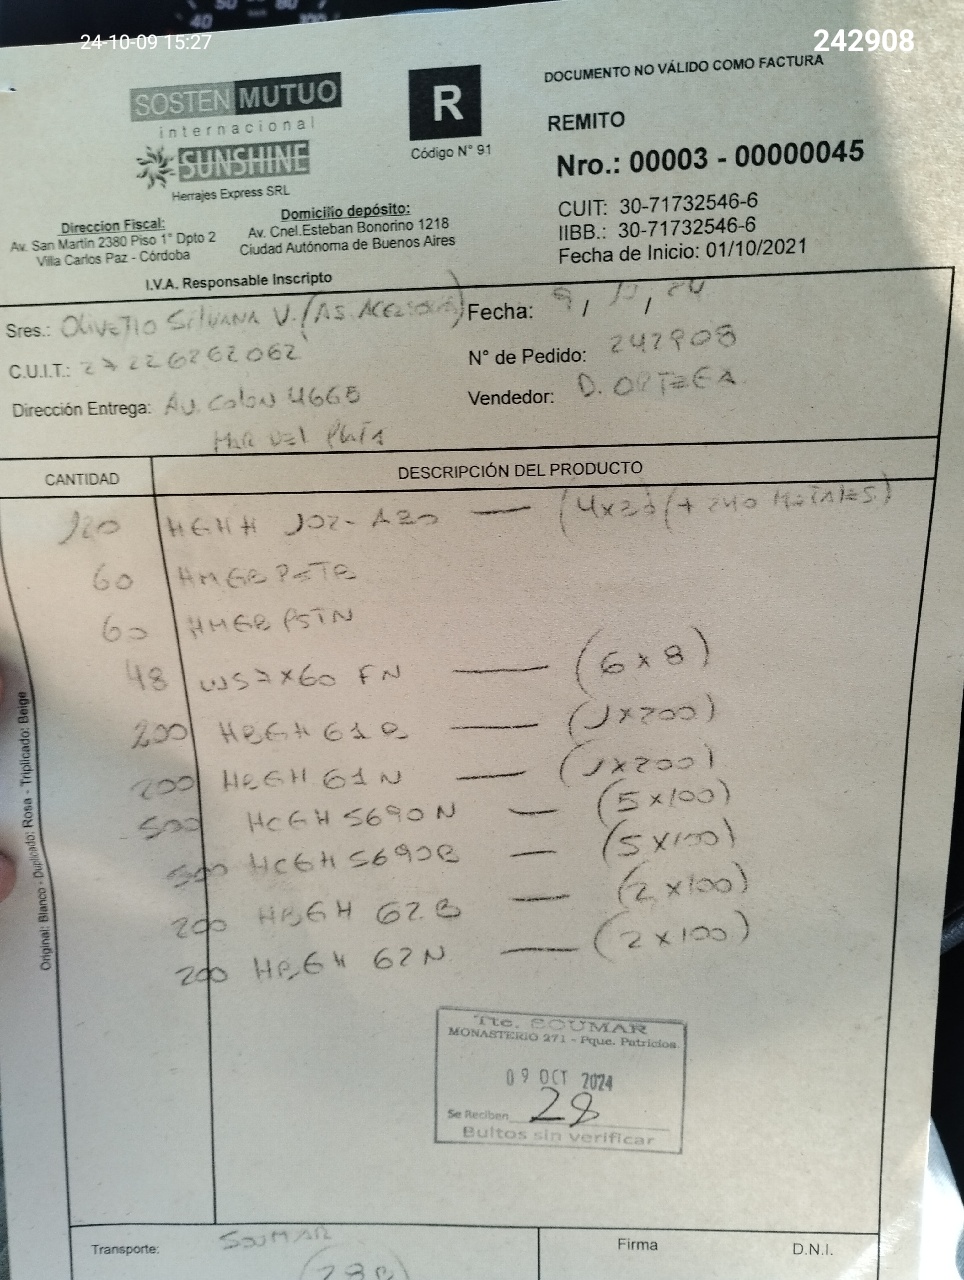 24-10-09 15:27
242908
SOSTEN MUTUO
internacional
SUNSHINE
Herrajes Express SRL
R
Código N° 91
DOCUMENTO NO VÁLIDO COMO FACTURA
REMITO
Nro.: 00003 - 00000045
CUIT: 30-71732546-6
IIBB.: 30-71732546-6
Fecha de Inicio: 01/10/2021
Direccion Fiscal:
Av. San Martin 2380 Piso 1° Dpto 2
Villa Carlos Paz - Córdoba
Domicilio depósito:
Av. Cnel.Esteban Bonorino 1218
Ciudad Autónoma de Buenos Aires
I.V.A. Responsable Inscripto
Sres.: OLIVETTO SILVANA V. (AS.
Fecha: 9 / 10 / 24
C.U.I.T.: 27226262062
N° de Pedido: 242908
Dirección Entrega: AV. COLON 4665
MAR DEL PLATA
Vendedor: D. ORTEGA
CANTIDAD
DESCRIPCIÓN DEL PRODUCTO
120 HGHH J02-A20 — (+ 240
60 HMGB PSTB
60 HMGB PSTN
48 WS7x60 FN — (6x8)
200 HBGH 61B — (1x200)
200 HBGH 61N — (1x200)
500 HCGH 5690N — (5x100)
500 HCGH 5690B — (5x100)
200 HBGH 62B — (2x100)
200 HBGH 62N — (2x100)
Tte. SOUMAR
MONASTERIO 271 - Pque. Patricios.
09 OCT 2024
Se Reciben 28
Bultos sin verificar
Original: Blanco - Duplicado: Rosa - Triplicado: Beige
Transporte: SOUMAR
(28B)
Firma
D.N.I.